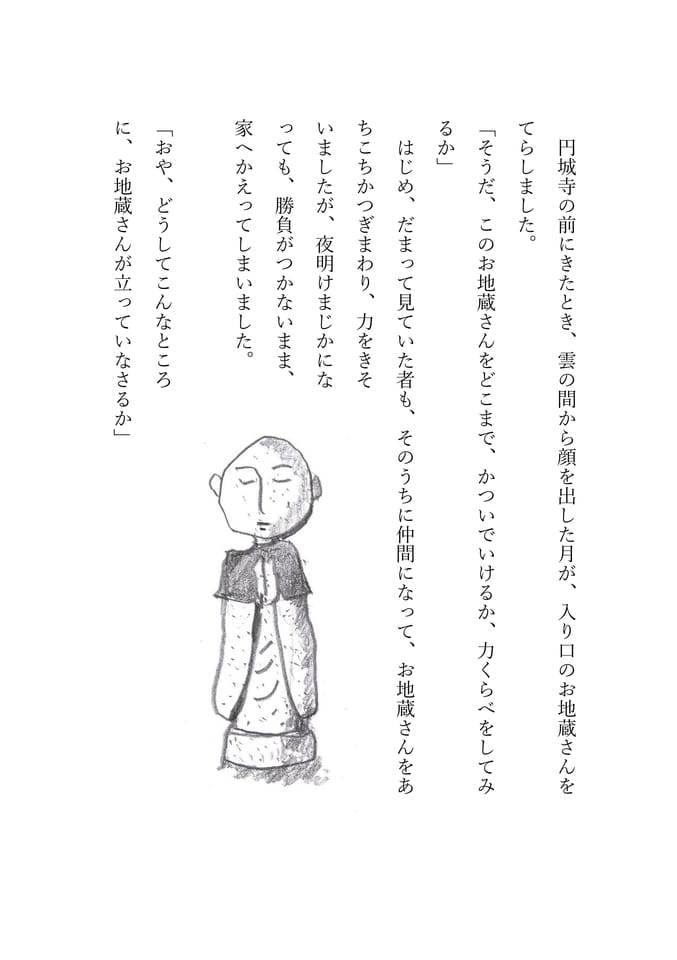 円城寺の前にきたとき、雲の間から顔を出した月が、入り口のお地蔵さんを
てらしました。
「そうだ、このお地蔵さんをどこまで、かついでいけるか、力くらべをしてみ
るか」
はじめ、だまって見ていた者も、そのうちに仲間になって、お地蔵さんをあ
ちこちかつぎまわり、力をきそ
いましたが、夜明けまじかにな
っても、勝負がつかないまま、
家へかえってしまいました。
「おや、どうしてこんなところ
に、お地蔵さんが立っていなさるか」